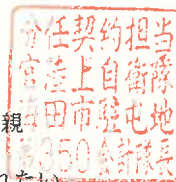 分任契約担当
官陸上自衛隊
海田市駐屯地
第350会計隊長
親